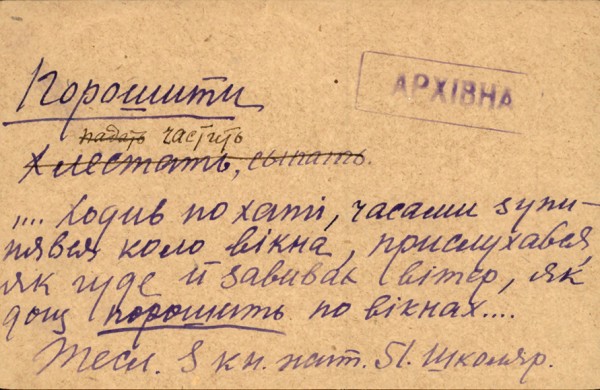 Порошити
АРХІВНА
падать частить
Хлестать, сыпать.
.... Ходив по хаті, часами зупи-
нявся коло вікна, прислухався,
як гуде й завиває вітер, як
дощ порошить по вікнах....
Тесл. З кн. жит. 51. Школяр.